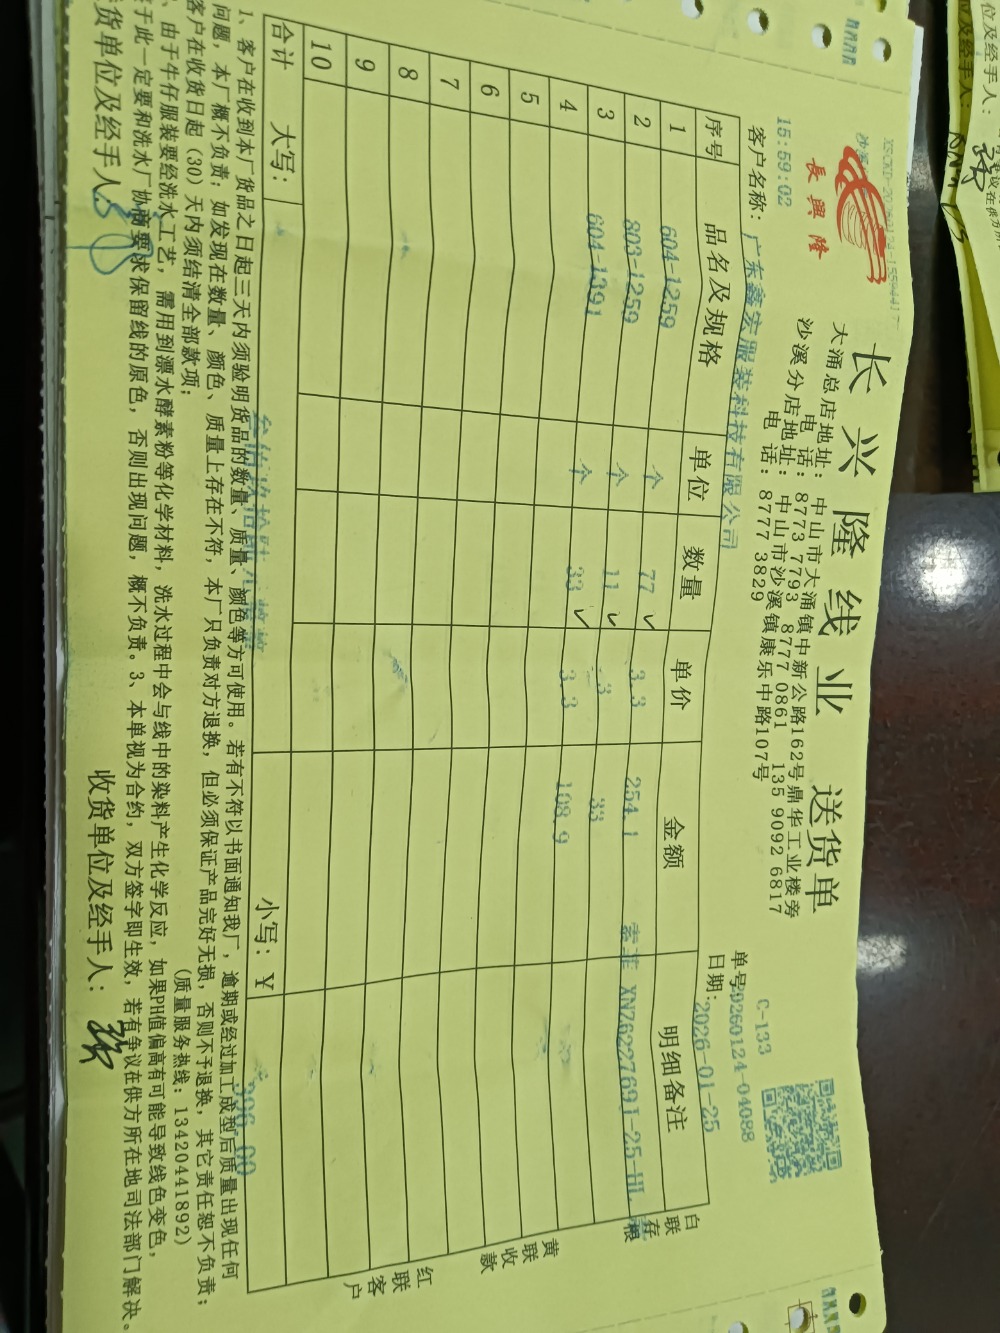 長興隆
长兴隆线业 送货单
大涌总店地址：中山市大涌镇中新公路162号鼎华工业楼旁
电话：8773 7793 8777 0861 135 9092 6817
沙溪分店地址：中山市沙溪镇康乐中路107号
电话：8777 3829
C-133
单号：20260124-04088
日期：2026-01-25
15:59:02
客户名称：广东鑫宏服装科技有限公司
序号 品名及规格 单位 数量 单价 金额 明细备注
1 604-1259 个 77 3.3 254.1 XN7622769J-25-HL
2 803-1259 个 11 3 33
3 604-1391 个 33 3.3 108.9
4
5
6
7
8
9
10
合计 大写： 小写：¥ 396.00
白联存根
黄联收款
红联客户
1、客户在收到本厂货品之日起三天内须验明货品的数量、质量、颜色等方可使用。若有不符以书面通知我厂，逾期或经过加工成型后质量出现任何
问题，本厂概不负责；如发现在数量、颜色、质量上存在不符，本厂只负责对方退换，但必须保证产品完好无损，否则不予退换，其它责任恕不负责；
客户在收货日起（30）天内须结清全部款项；
（质量服务热线：13420441892）
、由于牛仔服装要经洗水工艺，需用到漂水酵素粉等化学材料，洗水过程中会与线中的染料产生化学反应，如果PH值偏高有可能导致线色变色，
于此一定要和洗水厂协商要求保留线的原色，否则出现问题，概不负责。3、本单视为合约，双方签字即生效，若有争议在供方所在地司法部门解决。
货单位及经手人：
收货单位及经手人：
位及经手人：